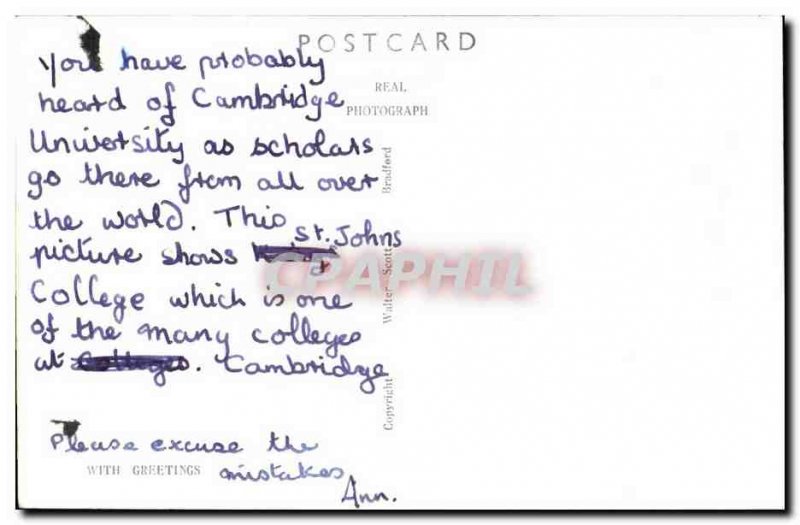 POSTCARD
You have probably
heard of Cambridge
University as scholars
go there from all over
the world. This
picture shows St. Johns
College which is one
of the many colleges
at Colleges. Cambridge
Please excuse the
mistakes
Ann.
REAL
PHOTOGRAPH
WITH GREETINGS
Copyright Walter Scott Bradford
CPAPHIL